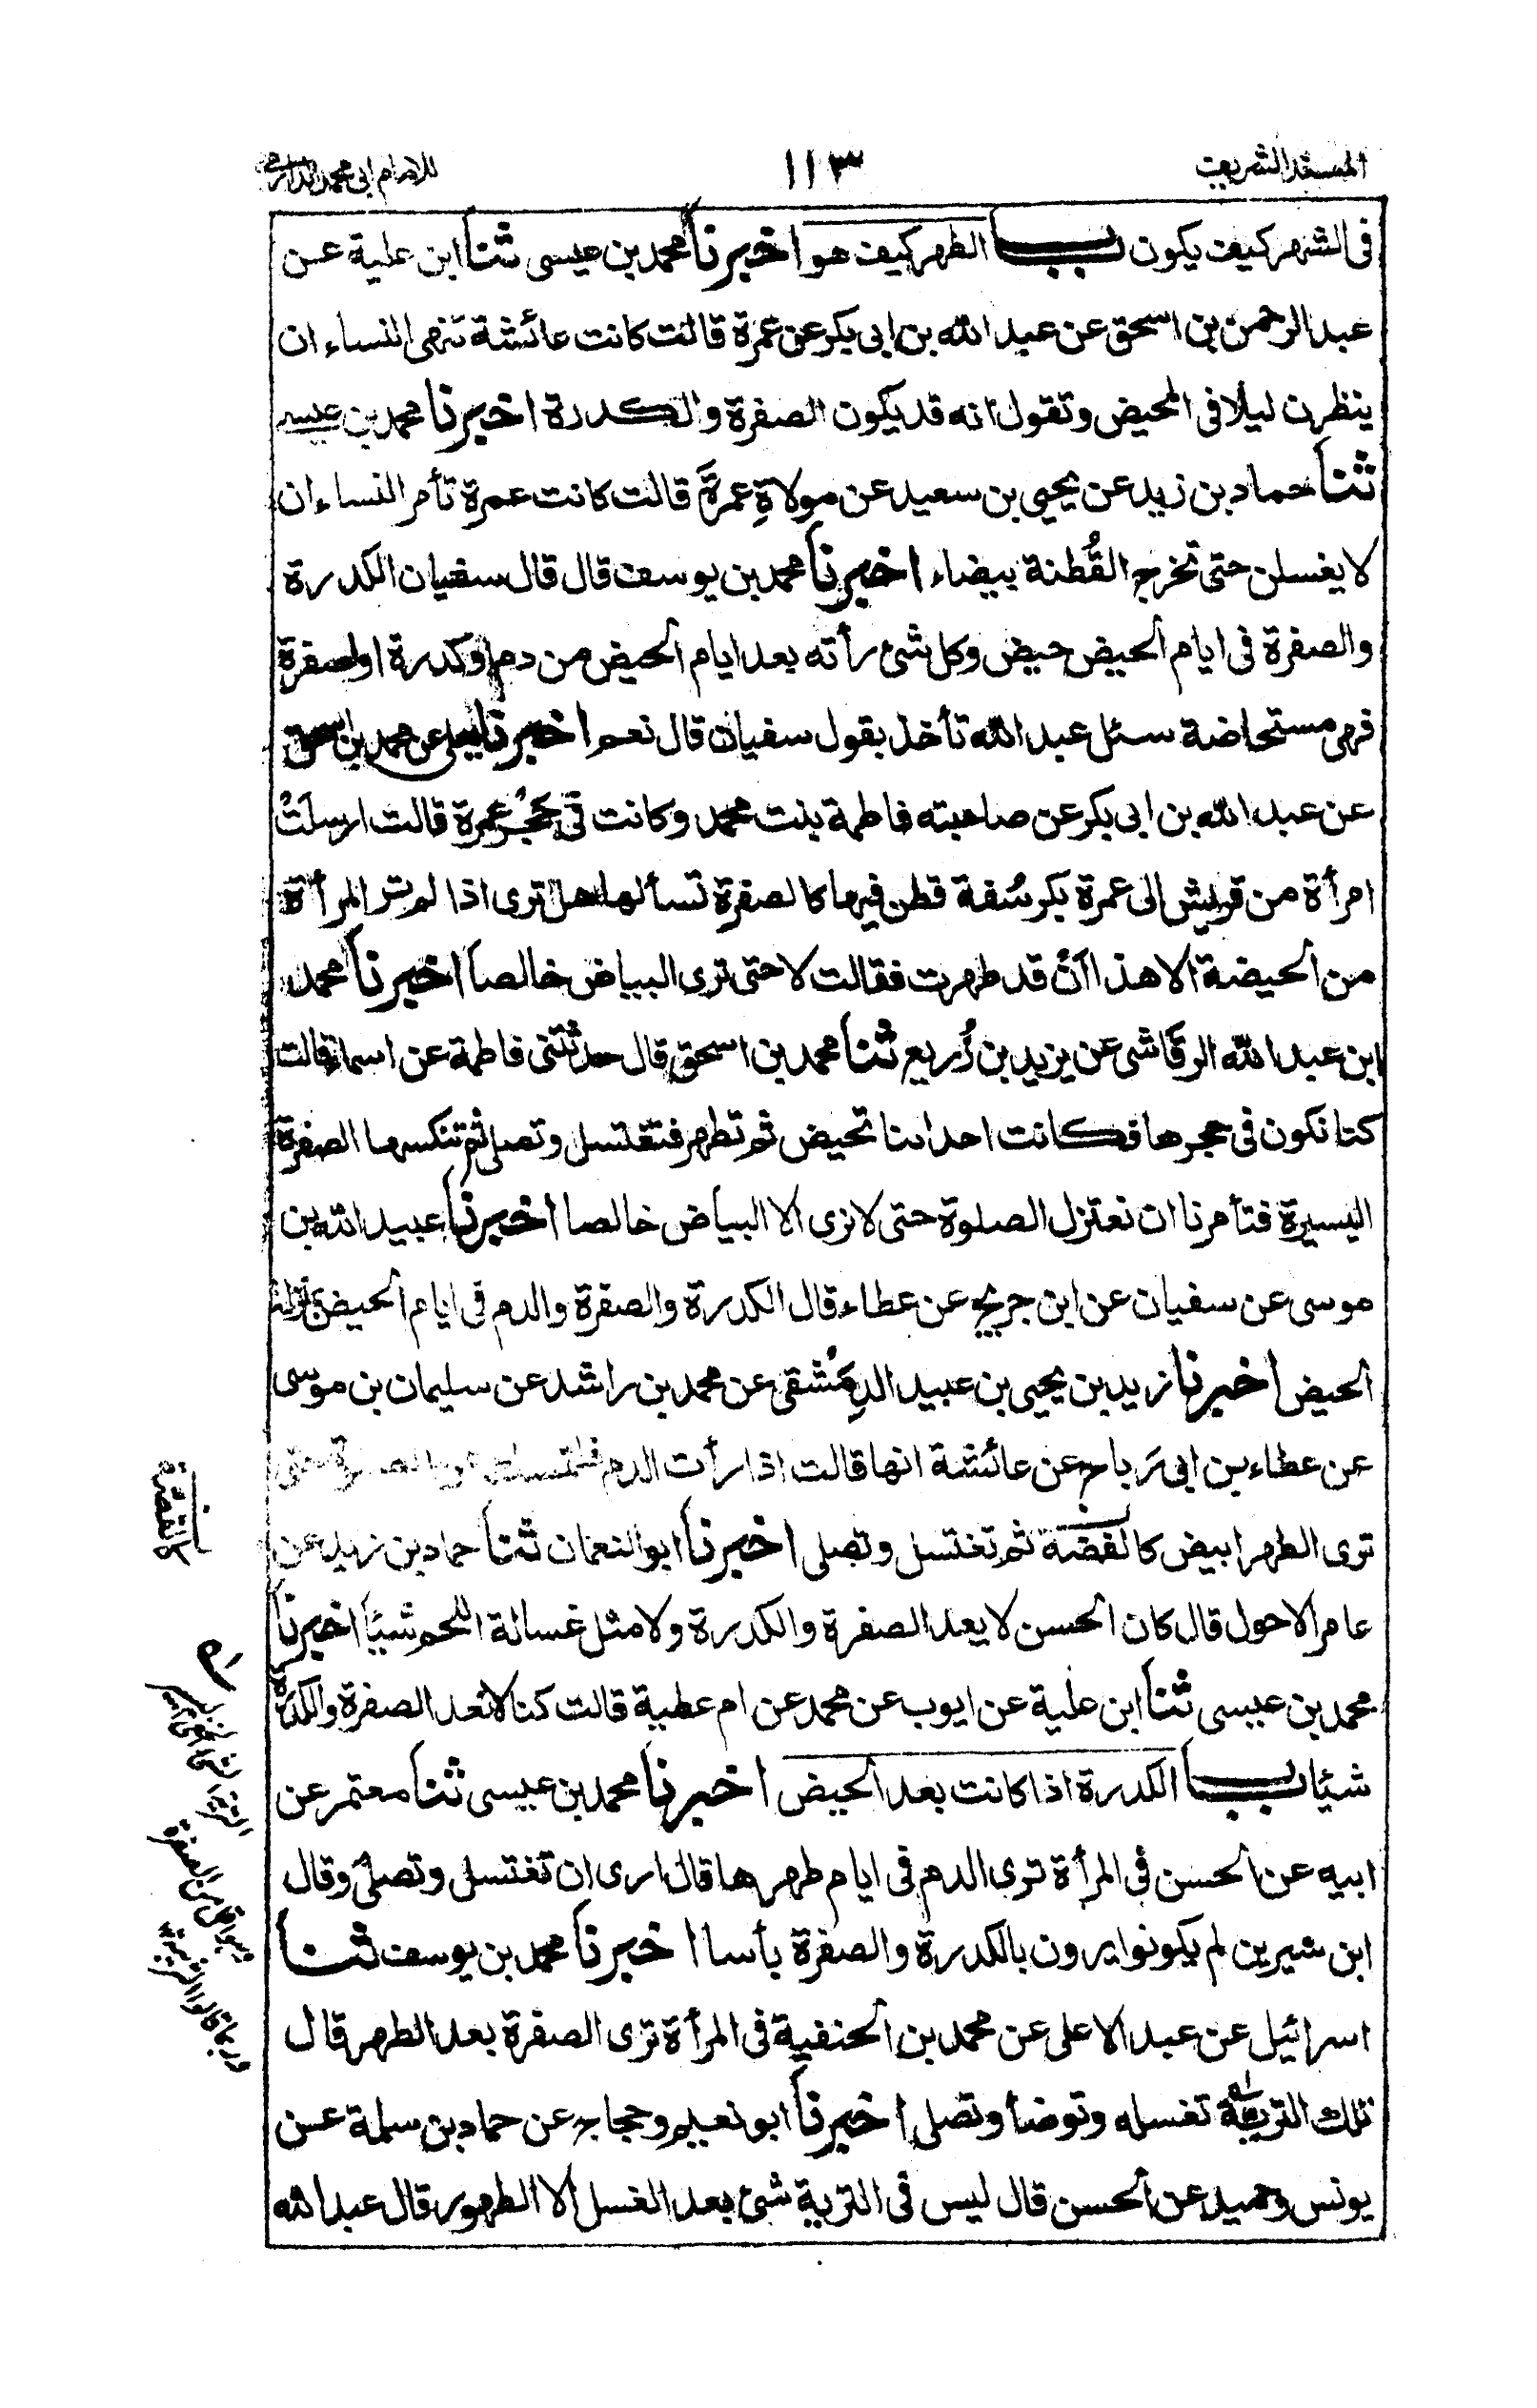 المسند الشريف
١١٣
للامام ابى محمد الدارمى
فى الشهر كيف يكون باب الطهر كيف هو اخبرنا محمد بن عيسى ثنا ابن علية عن
عبد الرحمن بن اسحق عن عبد الله بن ابى بكر عن عمرة قالت كانت عائشة تنهى النساء ان
ينظرن ليلا فى المحيض وتقول انه قد يكون الصفرة والكدرة اخبرنا محمد بن عيسى
ثنا حماد بن زيد عن يحيى بن سعيد عن مولاةِ عمرةَ قالت كانت عمرة تأمر النساء ان
لا يغسلن حتى تخرج القُطنة بيضاء اخبرنا محمد بن يوسف قال قال سفيان الكدرة
والصفرة فى ايام الحيض حيض وكل شئ رأته بعد ايام الحيض من دم او كدرة او صفرة
فهى مستحاضة سئل عبد الله تأخذ بقول سفيان قال نعم اخبرنا يعلى عن محمد بن اسحق
عن عبد الله بن ابى بكر عن صاحبته فاطمة بنت محمد وكانت فى حَجْر عمرة قالت ارسلَتْ
امرأة من قريش الى عمرة بكرسُفة قطن فيها كالصفرةِ تسألها هل ترى اذا لم تر المرأة
من الحيضة الا هذا اَنْ قد طهرت فقالت لا حتى ترى البياض خالصا اخبرنا محمد
ابن عبد الله الرقَاشى عن يزيد بن زُريع ثنا محمد بن اسحق قال حدثتنى فاطمة عن اسماء قالت
كنا نكون فى حجرها فكانت احدانا تحيض ثم تطهر فتغتسل وتصلى ثم تنكسها الصفرة
اليسيرة فتأمرنا ان نعتزل الصلوة حتى لا نرى الا البياض خالصا اخبرنا عبيد الله بن
موسى عن سفيان عن ابن جريج عن عطاء قال الكدرة والصفرة والدم فى ايام الحيض بمنزلة
الحيض اخبرنا زيد بن يحيى بن عبيد الدِمَشقى عن محمد بن راشد عن سليمان بن موسى
عن عطاء بن ابى رَباح عن عائشة انها قالت اذا رأت الدم فلتمسك عن الصلوة حتى
ترى الطهر ابيض كالفضة ثم تغتسل وتصلى اخبرنا ابو النعمان ثنا حماد بن زيد عن
عامر الاحول قال كان الحسن لا يعد الصفرة والكدرة ولا مثل غسالة اللحم شيئًا اخبرنا
محمد بن عيسى ثنا ابن علية عن ايوب عن محمد عن ام عطية قالت كنا لا نعد الصفرة والكدرة
شيئا باب الكدرة اذا كانت بعد الحيض اخبرنا محمد بن عيسى ثنا معتمر عن
ابيه عن الحسن فى المرأة ترى الدم فى ايام طهرها قال ارى ان تغتسل وتصلى وقال
ابن سيرين لم يكونوا يرون بالكدرة والصفرة بأسا اخبرنا محمد بن يوسف ثنا
اسرائيل عن عبد الاعلى عن محمد بن الحنفية فى المرأة ترى الصفرة بعد الطهر قال
تلك التربية تغسله وتوضأ وتصلى اخبرنا ابو نعيم وحجاج عن حماد بن سلمة عن
يونس وحميد عن الحسن قال ليس فى التربة شئ بعد الغسل الا الطهور قال عبد الله
كالقصّة